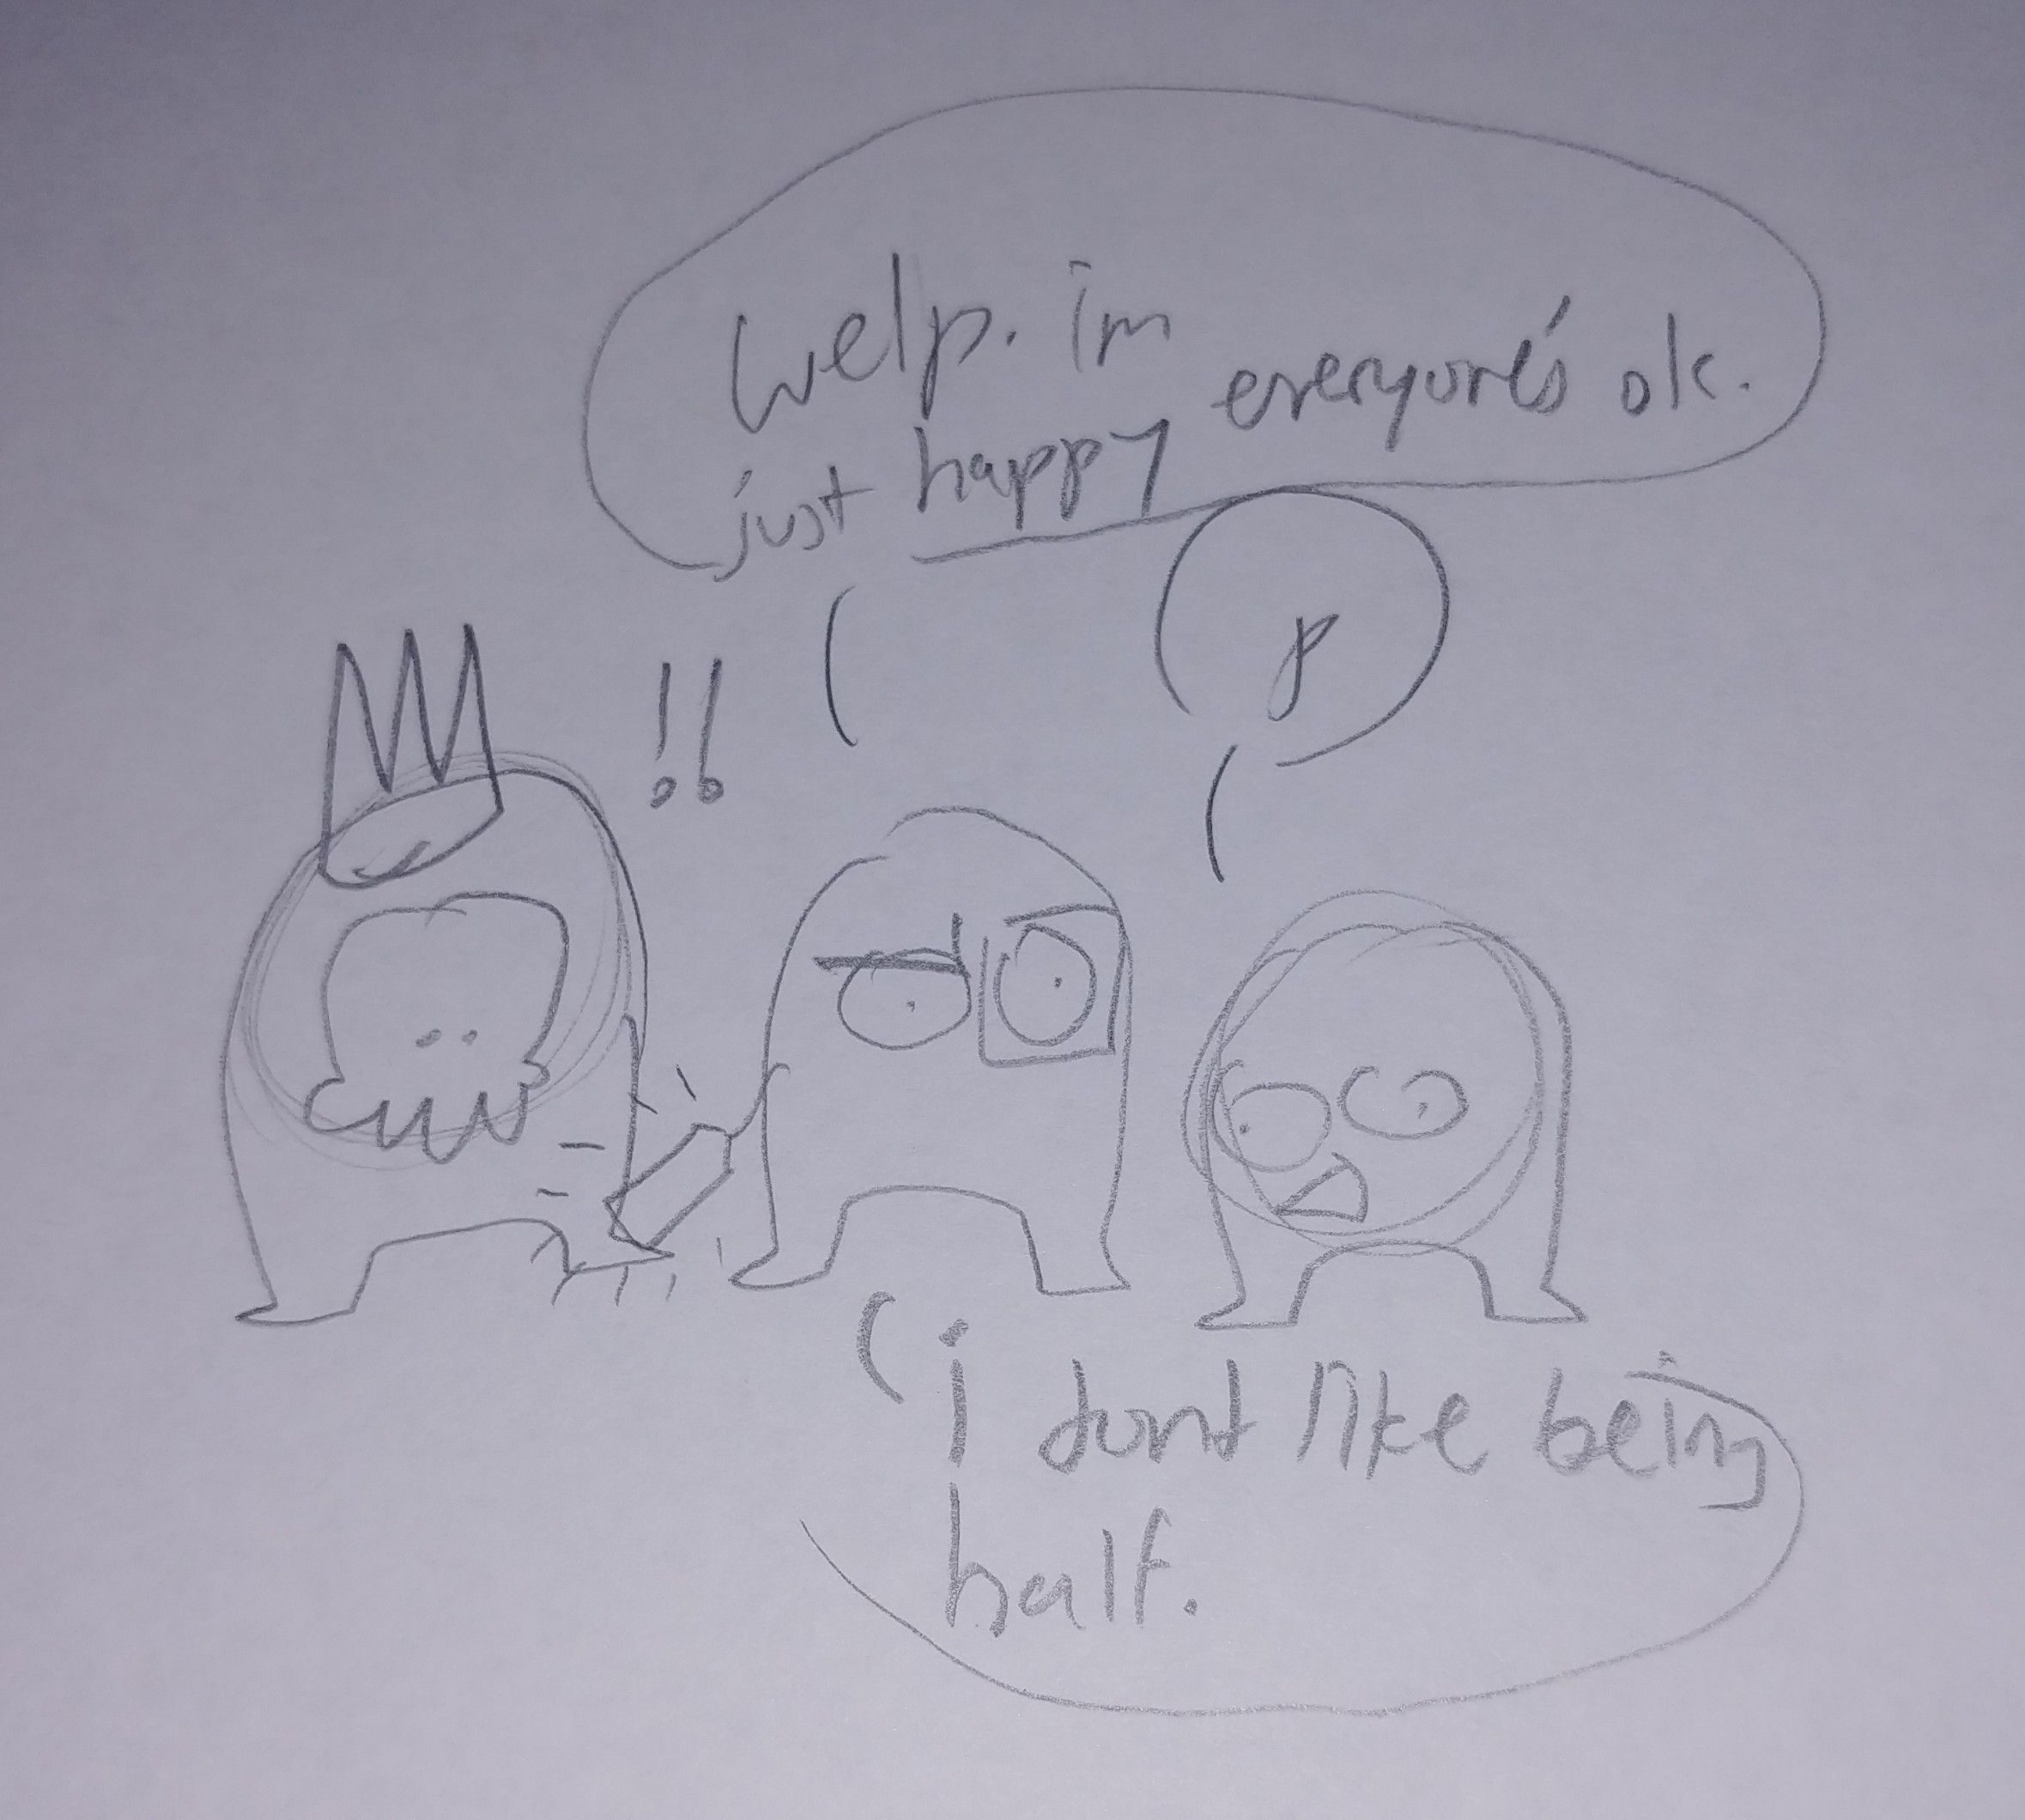 welp. im
just happy everyone's ok.
!!
p
i dont like being
half.